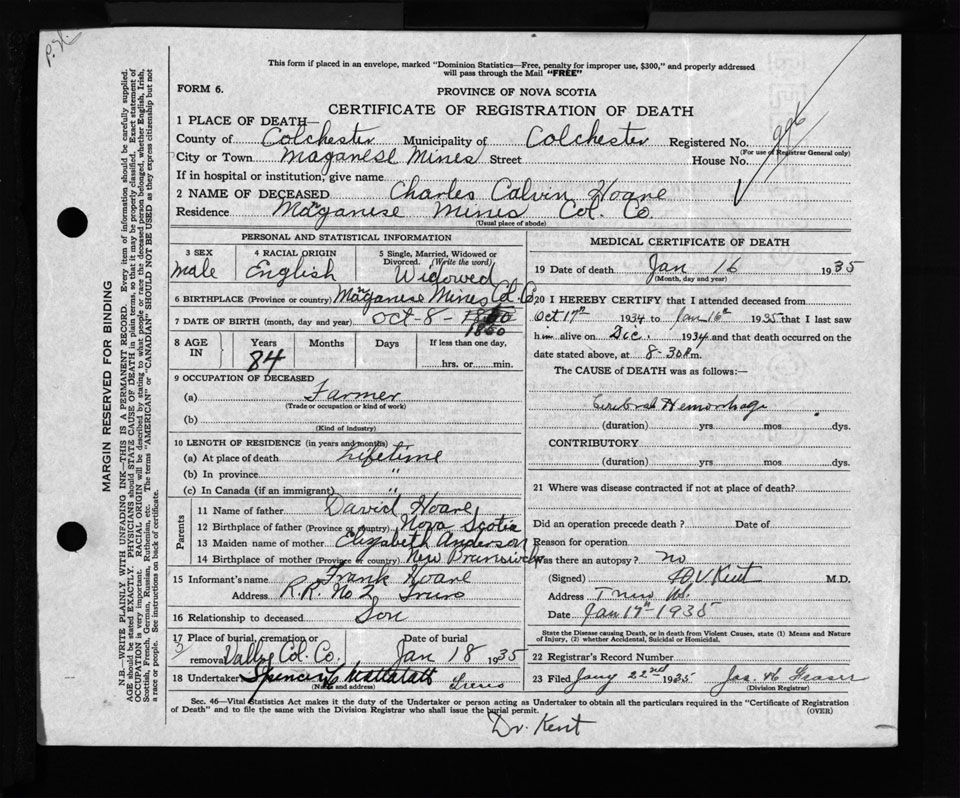 This form if placed in an envelope, marked "Dominion Statistics—Free, penalty for improper use, $300," and properly addressed
will pass through the Mail "FREE"
FORM 6.
PROVINCE OF NOVA SCOTIA
CERTIFICATE OF REGISTRATION OF DEATH
1 PLACE OF DEATH—
County of Colchester Municipality of Colchester Registered No.
(For use of Registrar General only)
City or Town Maganese Mines Street House No.
If in hospital or institution, give name
2 NAME OF DECEASED Charles Calvin Hoare
Residence Manganese Mines Col. Co
(Usual place of abode)
PERSONAL AND STATISTICAL INFORMATION
3 SEX
Male
4 RACIAL ORIGIN
English
5 Single, Married, Widowed or
Divorced. (Write the word)
Widowed
6 BIRTHPLACE (Province or country) Manganese Mines Col. Co
7 DATE OF BIRTH (month, day and year) Oct 8 - 1850
1850
8 AGE IN
Years
84
Months
Days
If less than one day,
hrs. or min.
9 OCCUPATION OF DECEASED
(a) Farmer
(Trade or occupation or kind of work)
(b)
(Kind of industry)
10 LENGTH OF RESIDENCE (in years and months)
(a) At place of death Lifetime
(b) In province "
(c) In Canada (if an immigrant) "
Parents
11 Name of father David Hoare
12 Birthplace of father (Province or country) Nova Scotia
13 Maiden name of mother Elizabeth Anderson
14 Birthplace of mother (Province or country) New Brunswick
15 Informant's name Frank Hoare
Address R.R. No 2 Truro
16 Relationship to deceased Son
17 Place of burial, cremation or
removal Col. Co.
Date of burial
Jan 18 1935
18 Undertaker Spencer Truro
(Name and address)
MEDICAL CERTIFICATE OF DEATH
19 Date of death Jan 16 1935
(Month, day and year)
20 I HEREBY CERTIFY that I attended deceased from
Oct 17th 1934 to Jan 16th 1935 that I last saw
him alive on Dec. 1934 and that death occurred on the
date stated above, at 8-30 P.m.
The CAUSE of DEATH was as follows:—
Cerebral Hemorrhage
(duration) yrs mos. dys.
CONTRIBUTORY
(duration) yrs. mos. dys.
21 Where was disease contracted if not at place of death?
Did an operation precede death? Date of
Reason for operation
Was there an autopsy? no
(Signed) Kent M.D.
Address Truro N.S.
Date Jan 17th - 1935
State the Disease causing Death, or in death from Violent Causes, state (1) Means and Nature
of Injury, (2) whether Accidental, Suicidal or Homicidal.
22 Registrar's Record Number
23 Filed Jany 22nd 1935 Jas. H Fraser
(Division Registrar)
Sec. 46—Vital Statistics Act makes it the duty of the Undertaker or person acting as Undertaker to obtain all the particulars required in the "Certificate of Registration
of Death" and to file the same with the Division Registrar who shall issue the burial permit.
(OVER)
Dr. Kent
MARGIN RESERVED FOR BINDING
N.B.—WRITE PLAINLY WITH UNFADING INK—THIS IS A PERMANENT RECORD. Every item of information should be carefully supplied.
AGE should be stated EXACTLY. PHYSICIANS should STATE CAUSE OF DEATH in plain terms, so that it may be properly classified. Exact statement of
OCCUPATION is very important. RACIAL ORIGIN will be described by stating to what people or race the deceased person belonged, whether English, Irish,
Scottish, French, German, Russian, Ruthenian, etc. The terms "AMERICAN" or "CANADIAN" SHOULD NOT BE USED as they express citizenship but not
a race or people. See instructions on back of certificate.